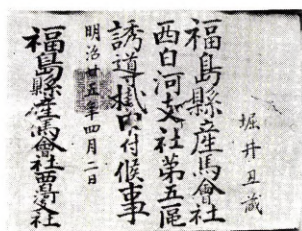 堀井丑蔵
福島縣産馬會社
西白河支社第五區
誘導掛申付候事
明治廿五年四月二日
福島縣産馬會社西白河支社